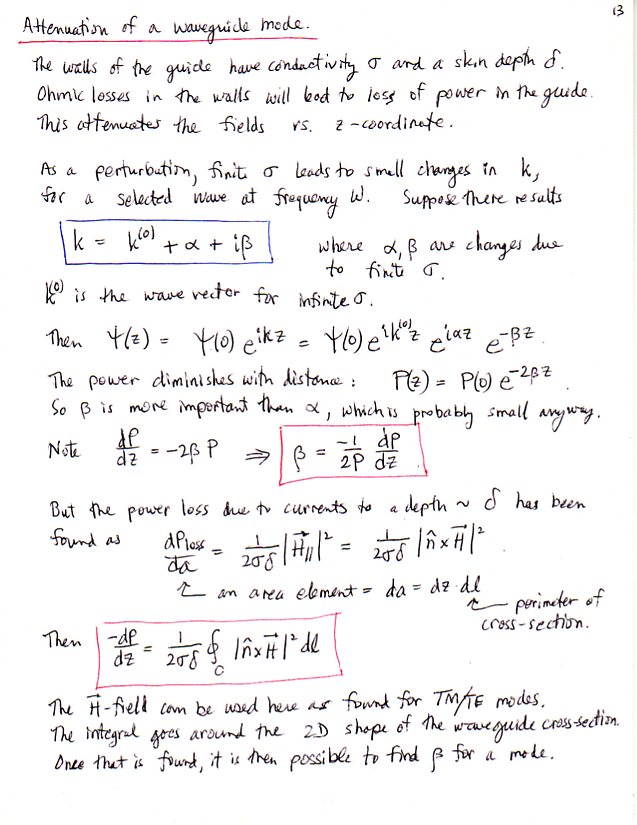 13
Attenuation of a waveguide mode.
The walls of the guide have conductivity σ and a skin depth δ.
Ohmic losses in the walls will lead to loss of power in the guide.
This attenuates the fields vs. z-coordinate.
As a perturbation, finite σ leads to small changes in k,
for a selected wave at frequency ω. Suppose there results
k = k⁽⁰⁾ + α + iβ where α, β are changes due
to finite σ.
k⁽⁰⁾ is the wave vector for infinite σ.
Then Ψ(z) = Ψ(0) e^{ikz} = Ψ(0) e^{ik⁽⁰⁾z} e^{iαz} e^{-βz}.
The power diminishes with distance: P(z) = P(0) e^{-2βz}.
So β is more important than α, which is probably small anyway.
Note dP/dz = -2β P ⇒ β = -1/2P dP/dz
But the power loss due to currents to a depth ~ δ has been
found as dP_loss/da = 1/2σδ |H⃗_∥|² = 1/2σδ |n̂ × H⃗|²
↑ an area element = da = dz·dl
↑ perimeter of
cross-section.
Then -dP/dz = 1/2σδ ∮_C |n̂×H⃗|² dl
The H⃗-field can be used here as found for TM/TE modes.
The integral goes around the 2D shape of the waveguide cross-section.
Once that is found, it is then possible to find β for a mode.